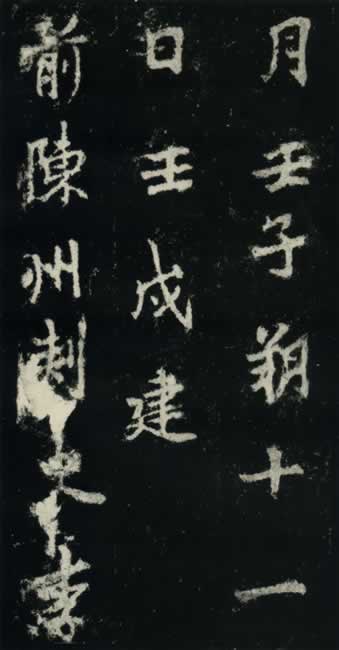 月壬子朔十一
日壬戌建
前陳州刺史李